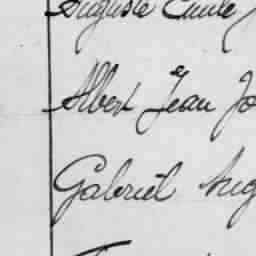 Auguste Emile
Albert Jean Jo
Gabriel Aug